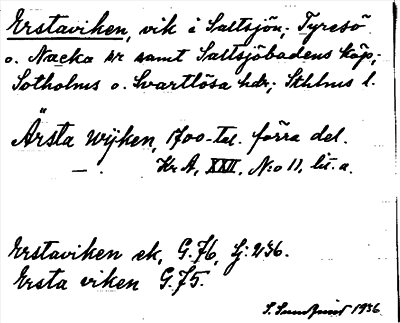 Erstaviken, vik i Saltsjön; Tyresö
o. Nacka sr samt Saltsjöbadens köp.;
Sotholms o. Svartlösa hdr; Sthlms l.
Ärsta Wijken, 1700-tal. förra del.
— . Kr A, XXII, N:o 11, lit. a.
Erstaviken ek, G.76, Lj: 236.
Ersta viken G.75.
S. Sundfnid 1936